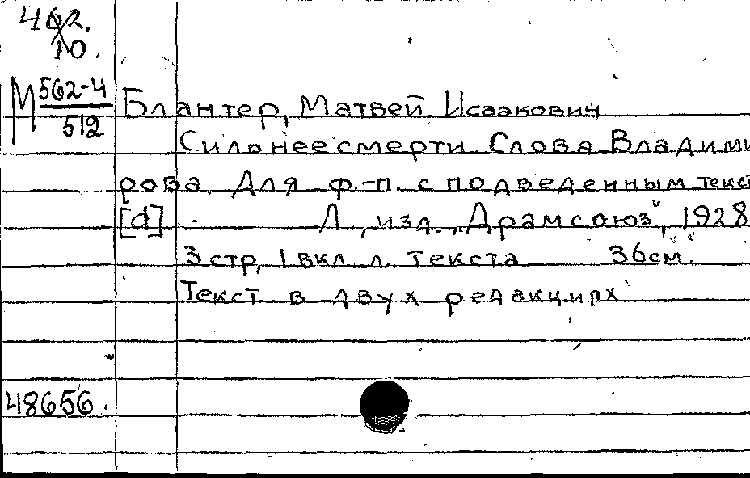 462.
10.
М 562-4
512
Блантер, Матвей Исаакович
Сильнее смерти. Слова Владими
рова. Для ф-п. с подведенным текст
[d] Л., изд. "Драмсоюз", 1928
3 стр, 1 вкл. л. текста 36см.
Текст в двух редакциях
48656.